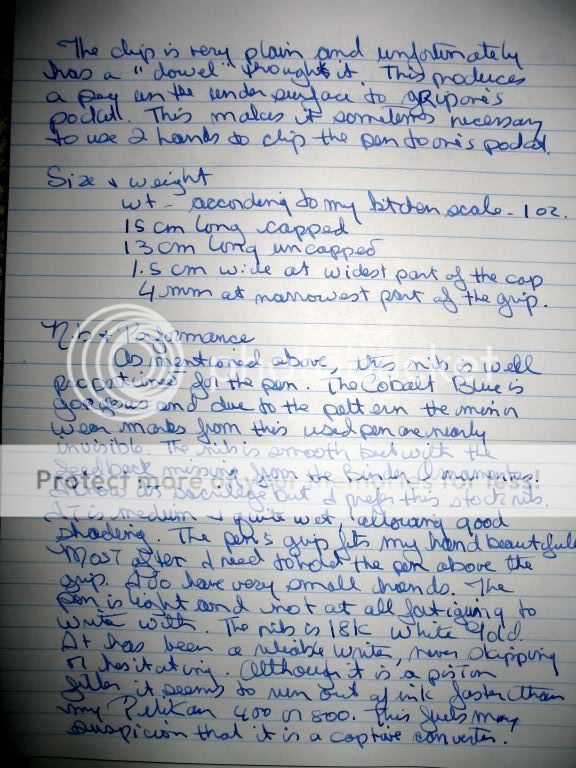 The clip is very plain and unfortunately
has a "dowel" throught it. This produces
a peg on the under surface to grip one's
pocket. This makes it sometimes necessary
to use 2 hands to clip the pen to one's pocket.
Size & weight
wt - according to my kitchen scale - 1 oz.
15 cm long capped
13 cm long uncapped
1.5 cm wide at widest part of the cap
4 mm at narrowest part of the grip.
Nib & Performance
As mentioned above, this nib is well
proportioned for the pen. The Cobalt Blue is
gorgeous and due to the pattern the minor
wear marks from this used pen are nearly
invisible. The nib is smooth but with the
feedback missing from the Binder
Protect more of your memories for less!
sacrilege but I prefer this stock nib.
It is medium & quite wet, allowing good
shading. The pen's grip fits my hand beautifully
Most often I need to hold the pen above the
grip. I do have very small hands. The
pen is light and not at all fatiguing to
write with. The nib is 18K White Gold.
It has been a reliable writer, never skipping
or hesitating. Although it is a piston
filler it seems to run out of ink faster than
my Pelikan 400 or 800. This fuels my
suspicion that it is a captive converter.